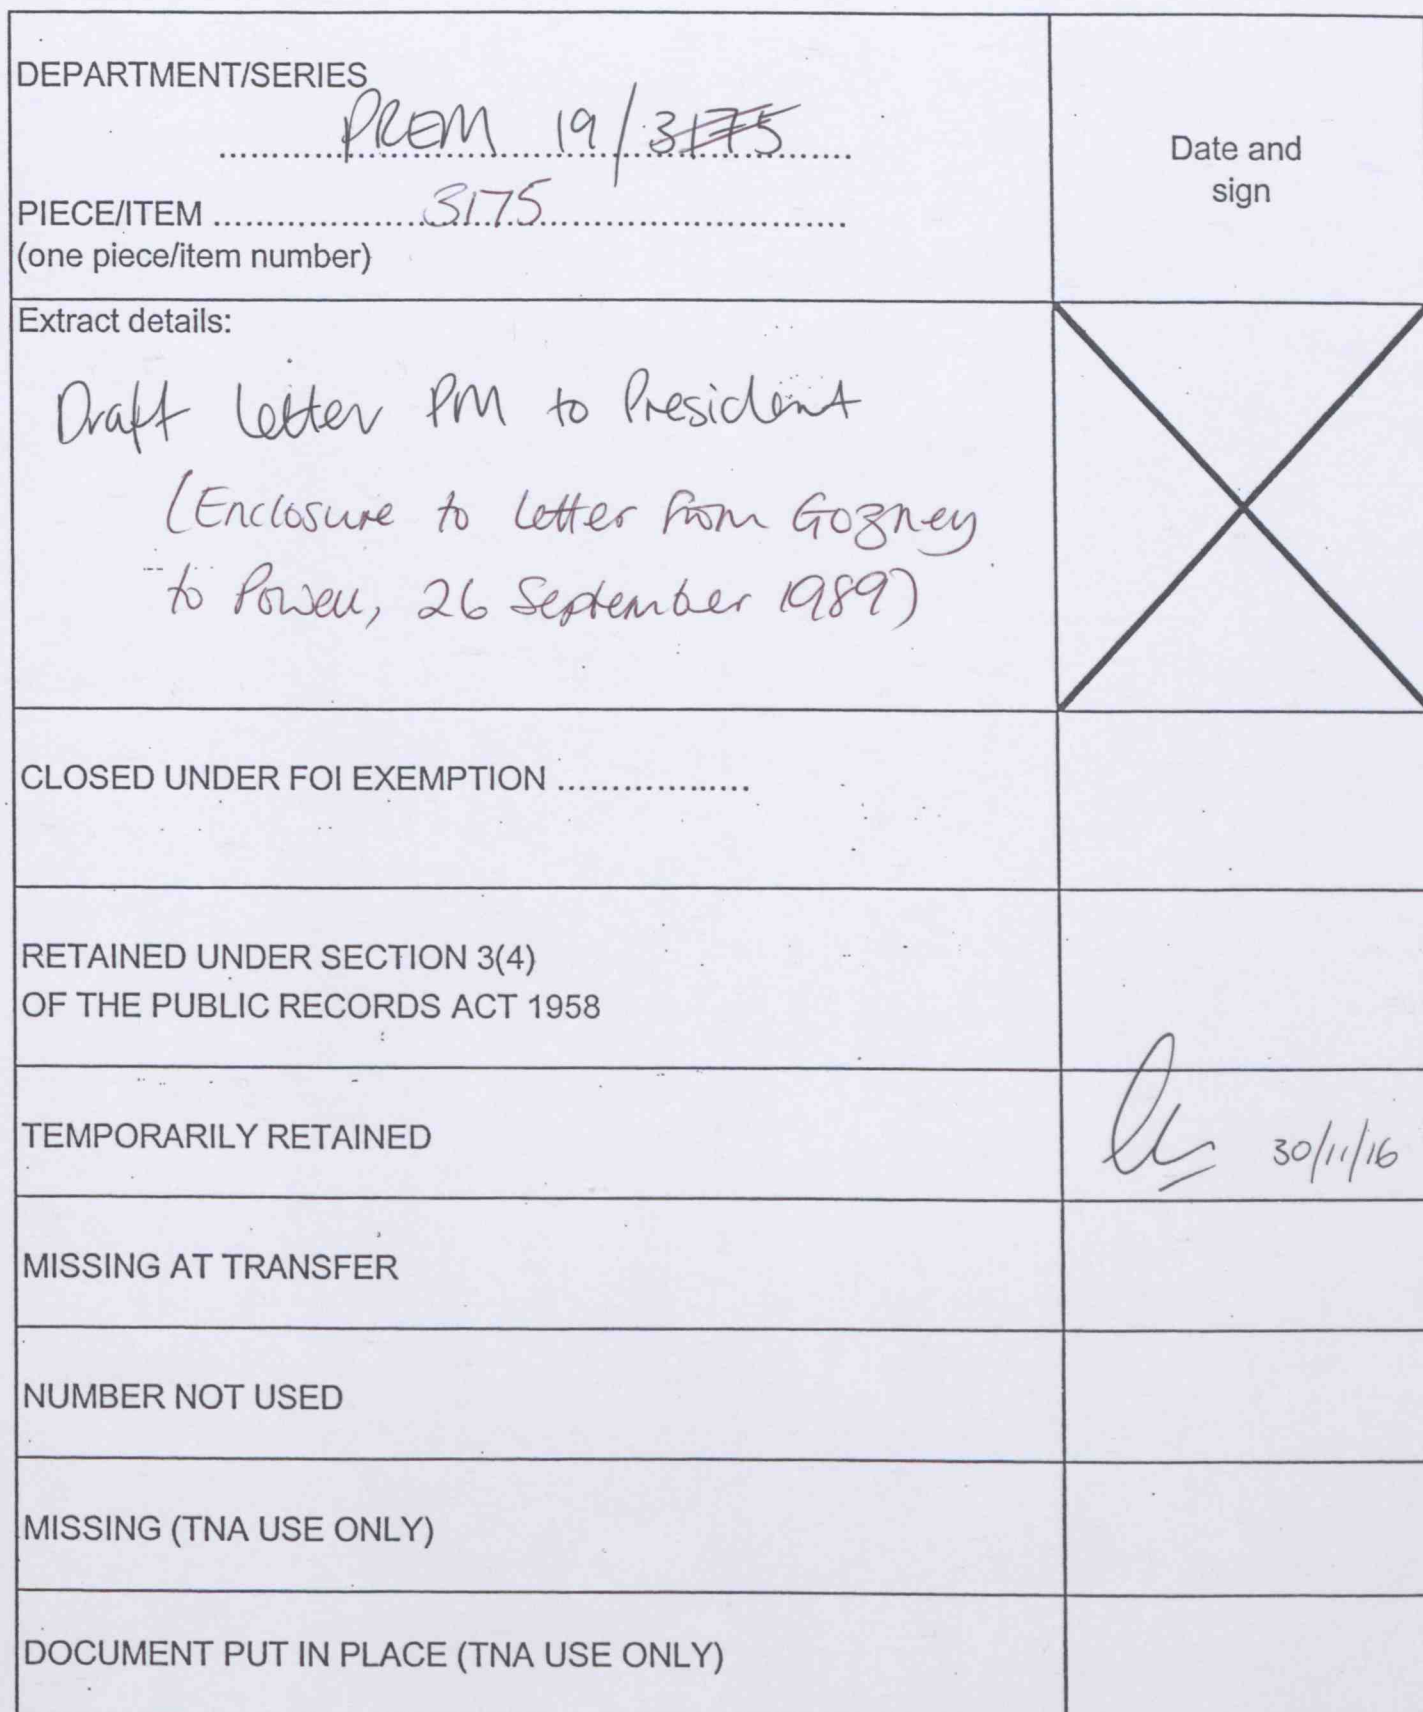 DEPARTMENT/SERIES
PREM 19/3175
Date and
sign
PIECE/ITEM ........................3175...................................
(one piece/item number)
Extract details:
Draft letter PM to President
(Enclosure to letter from Gozney
to Powell, 26 September 1989)
CLOSED UNDER FOI EXEMPTION ..................
RETAINED UNDER SECTION 3(4)
OF THE PUBLIC RECORDS ACT 1958
TEMPORARILY RETAINED
30/11/16
MISSING AT TRANSFER
NUMBER NOT USED
MISSING (TNA USE ONLY)
DOCUMENT PUT IN PLACE (TNA USE ONLY)